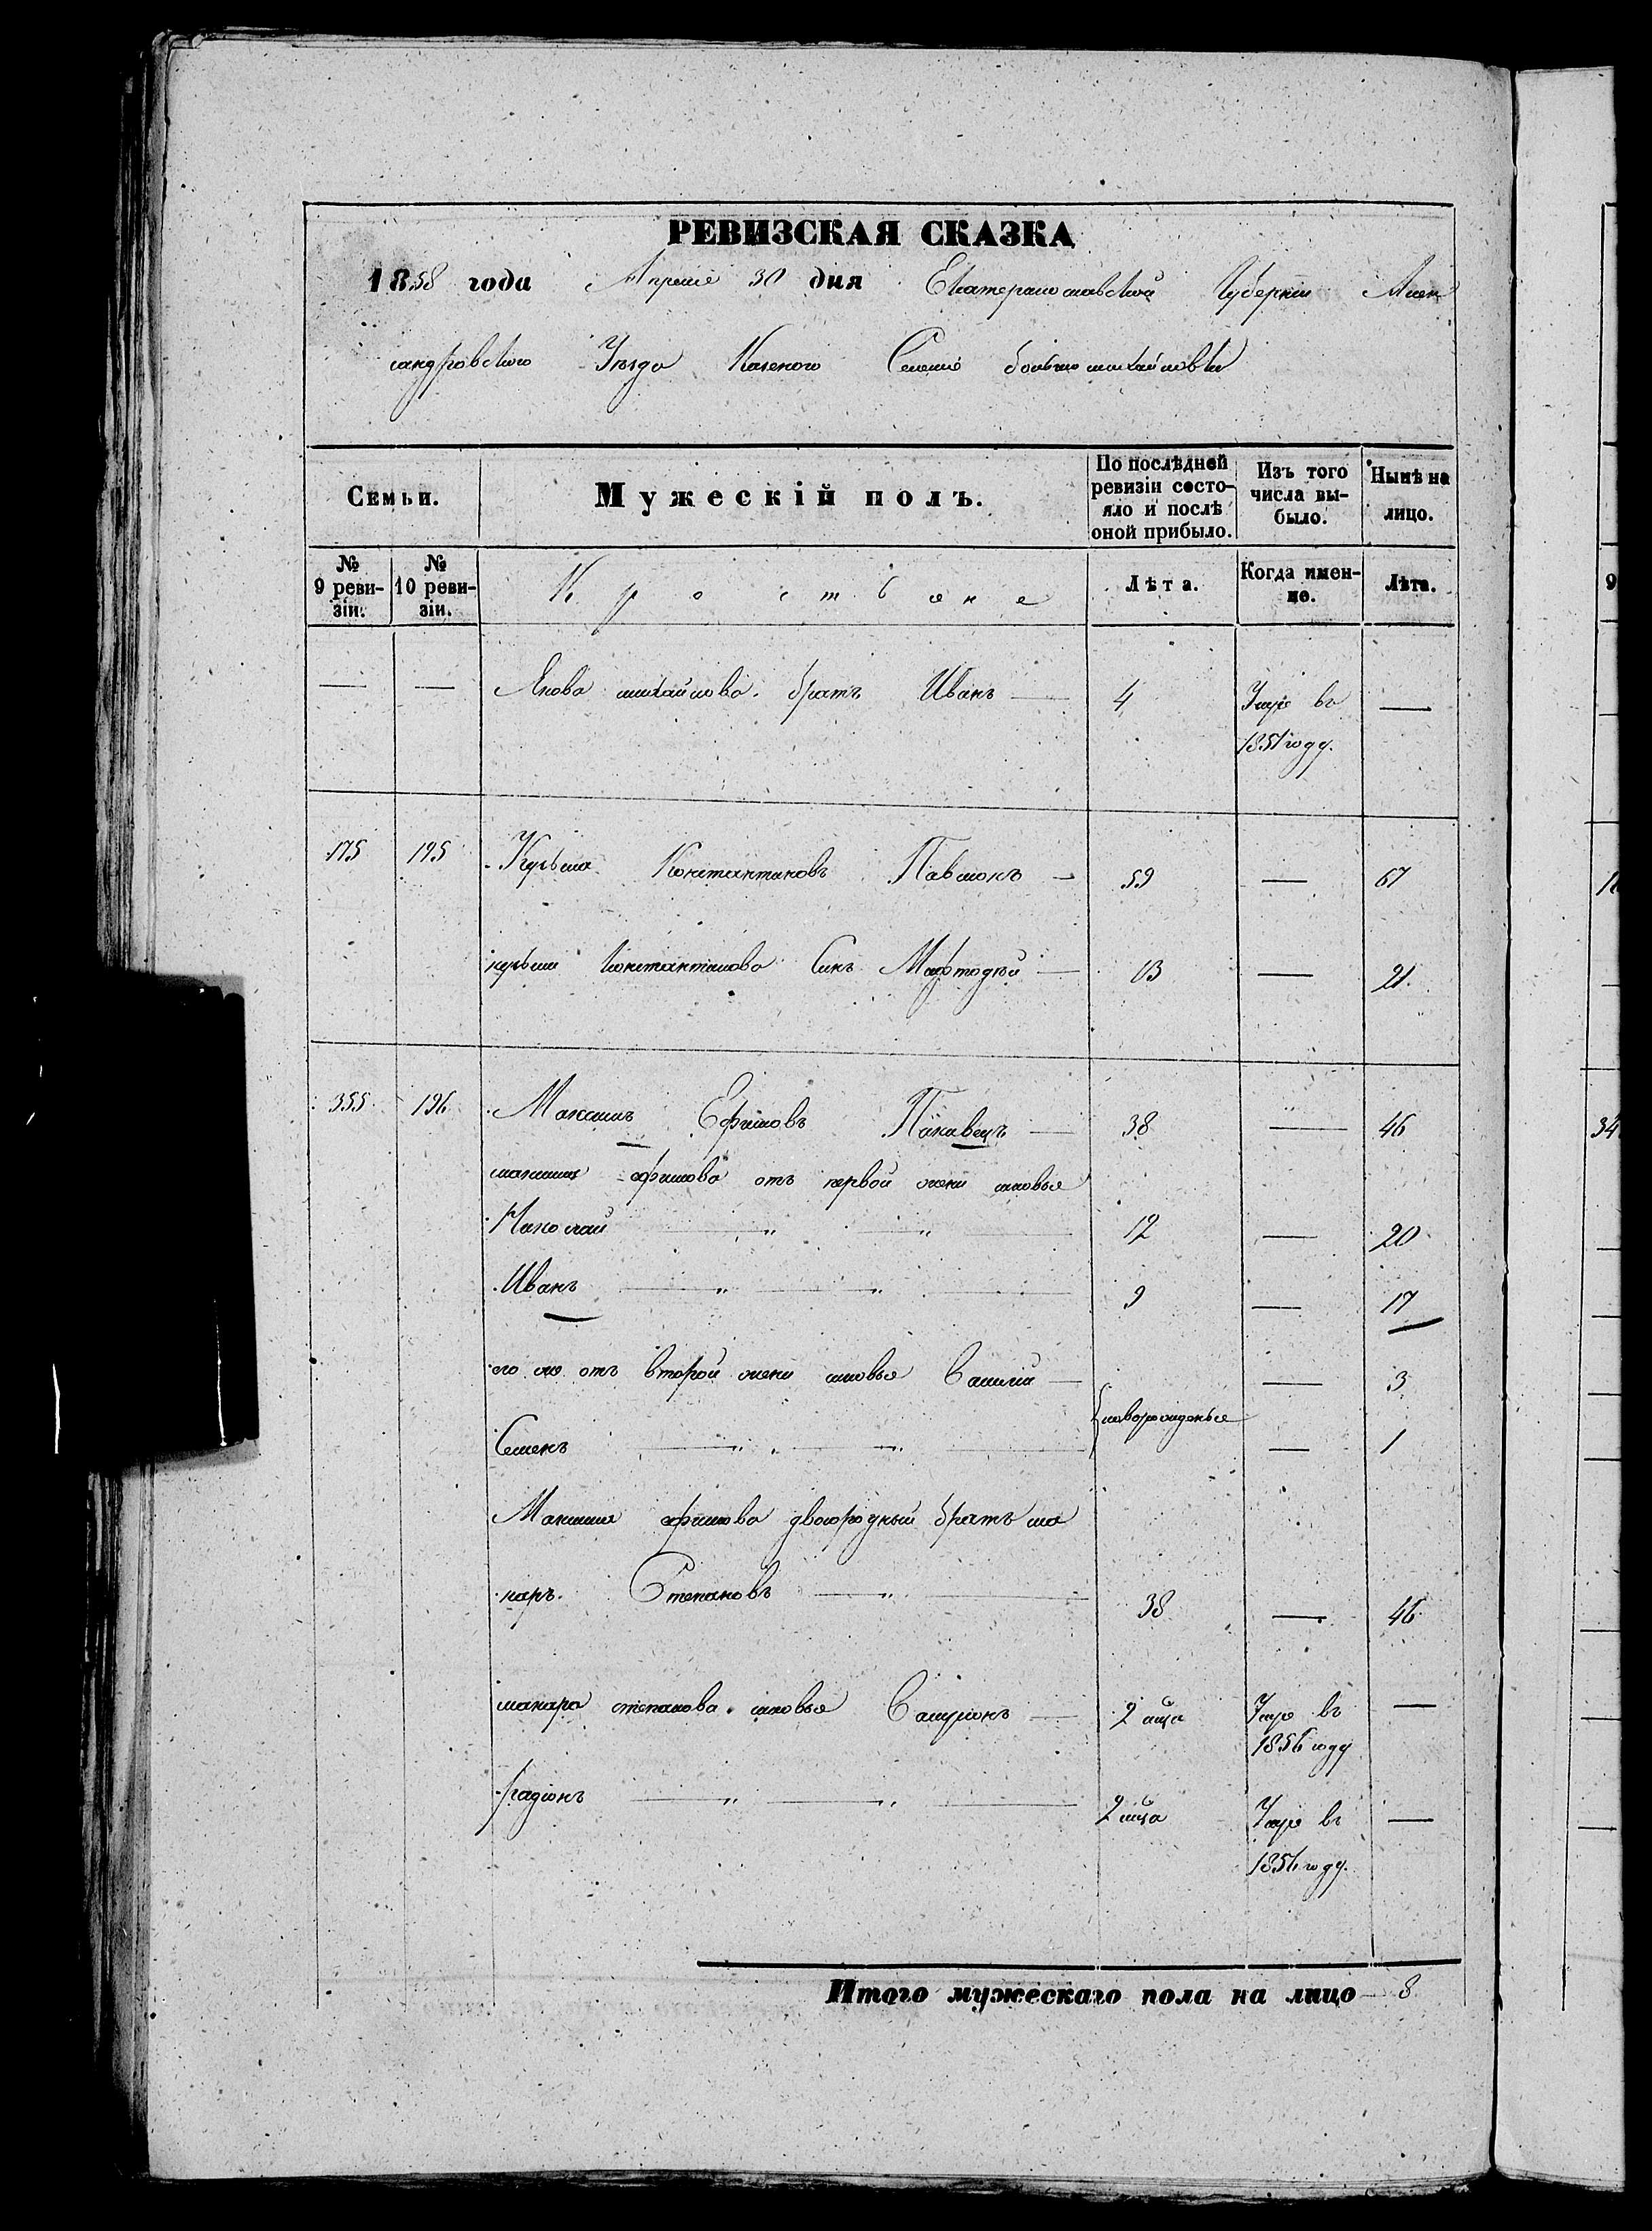 РЕВИЗСКАЯ СКАЗКА
1858 года Апреля 30 дня Екатеринославской Губернии Алек
сандровского Уезда Казеного Селения большемихайловки
Семьи.
Мужескій полъ.
По послѣдней ревизіи состо-
яло и послѣ
оной прибыло.
Изъ того
числа вы-
было.
Нынѣ на
лицо.
№
9 реви-
зіи.
№
10 реви-
зіи.
Крестьяне
Лѣта.
Когда имен-
но.
Лѣта.
— — Якова михайлова братъ Иванъ — 4 Умре въ —
1851 году.
175 195 Кузьма Константиновъ Павлюкъ — 59 — 67
кузьмы константинова Сынъ Мефтодѣй — 13 — 21
355 196 Максимъ Ефимовъ — 38 — 46
максима ефимова отъ первой жены сыновья
Николай — „ — „ — 12 — 20
Иванъ — „ — „ — 9 — 17
его же отъ второй жены сыновья Василий — — 3
новорожденые
Семенъ — „ „ — „ — — 1
Максима ефимова двоюродный братъ ма
каръ Степановъ — „ — 38 — 46
макара степанова сыновья — 2 мца Умре въ —
1856 году
радионъ — „ — „ — 2 мца Умре въ —
1856 году.
Итого мужескаго пола на лицо — 8
9
34